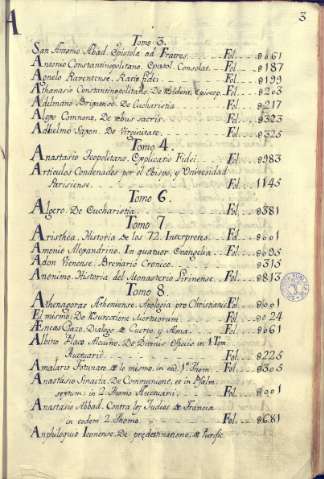 A
3
Tomo 3.
San Antonio Abad. Epistola ad Fratres. Fol. 0061
Antonio Constantinopolitano. Epistol. Consolat. Fol. 0187
Agnelo Ravenense. Ratio fidei. Fol. 0199
Athanasio Constantinopolitano. De Fol. 0203
Adelmano Brixiense. De Eucharistia Fol. 0217
Alexo Comneno. De rebus sacris. Fol. 0323
Adhelmo Saxon. De Virginitate. Fol. 0325
Tomo 4.
Anastasio Teopolitano. Explicatio Fidei. Fol. 0983
Articulos Condenados por el Obispo, y Universidad
Parisiense. Fol. 1145
Tomo 6.
Algero. De Eucharistia. Fol. 0381
Tomo 7
Aristhea. Historia de los 72. Interpretes. Fol. 0001
Amonio Alexandrino. In quatuor Evangelia. Fol.
Adon Vienense. Breviario Cronico. Fol. 0315
Anonimo. Historia del Monasterio Fol. 0813
Tomo 8
Athenagoras Atheniense. Apologia pro Christianis Fol. 0001
El mismo. De Resurectione Mortuorum. Fol. 0024
Æneas Gazo. Dialogo de Cuerpo, y Alma. Fol. 0661
Albino Flaco Alcuino. De Divinis Officiis in 1. Tom.
Auctuarii. Fol. 0225
Amalario Fortunato de lo mismo, in eod. 1º Thom. Fol. 0305
Anastasio Sinaita. De Communione, et in Psalm.
sextum: in 2. Thomo Auctuarii. Fol. 0901
Anastasio Abbad. Contra los Judios de Francia
in eodem 2. Thomo. Fol. 0681
Amphiloquio Iconense. De